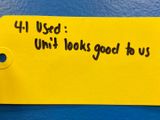 4.1 Used:
Unit looks good to us